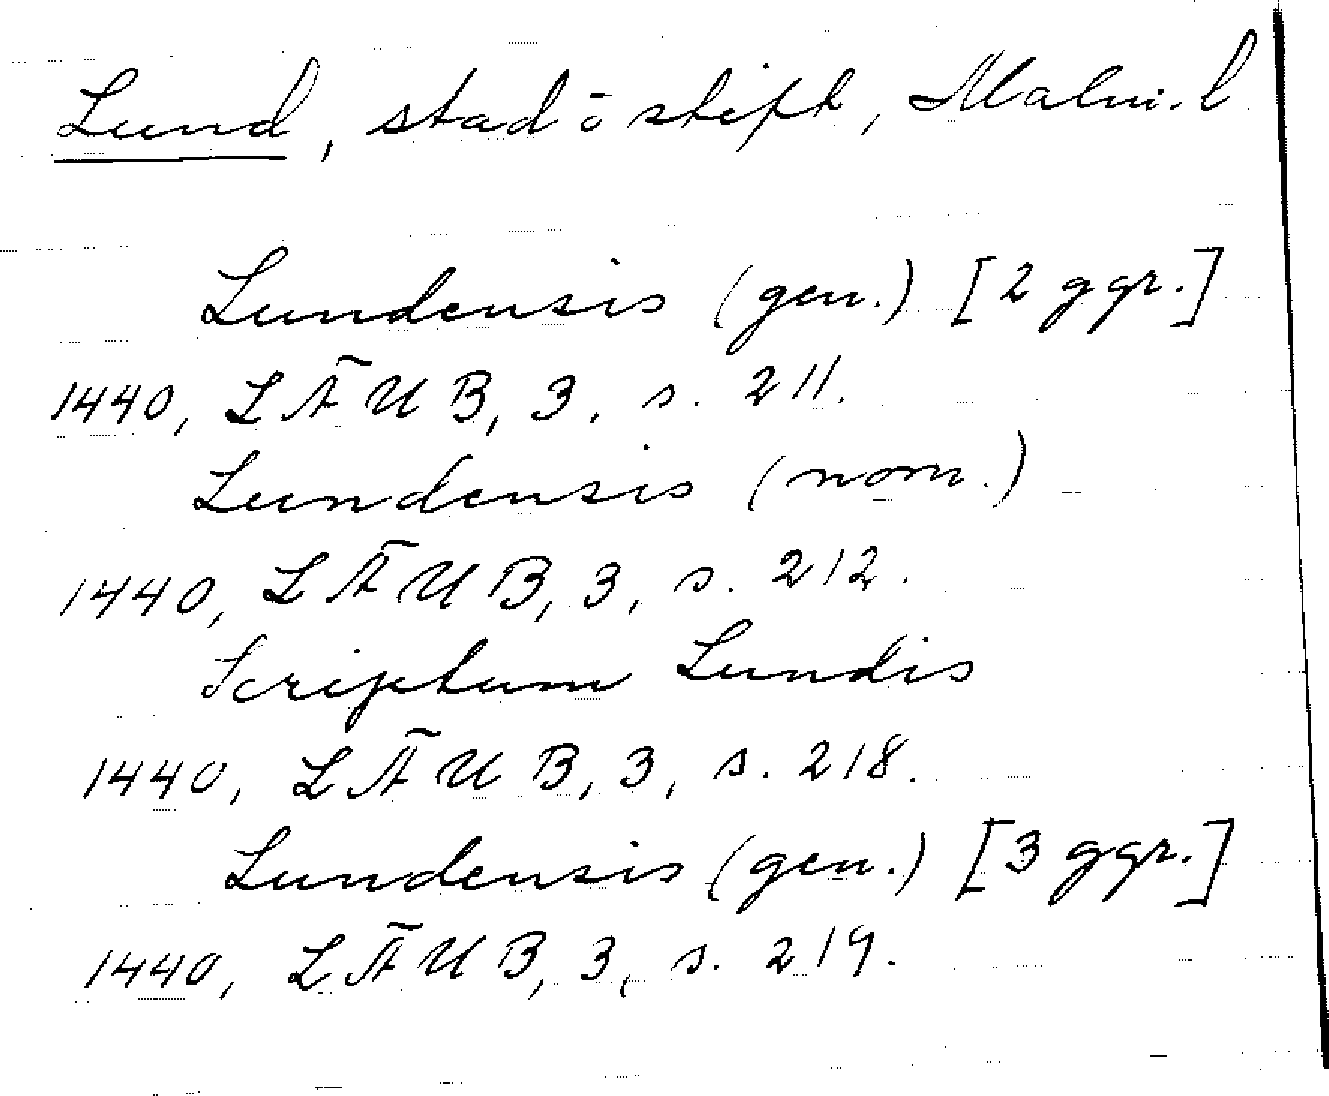 Lund, stad o stift, Malm. l
Lundensis (gen.) [2 ggr.]
1440, LÄUB, 3, s. 211.
Lundensis (nom.)
1440, LÄUB, 3, s. 212.
Scriptum Lundis
1440, LÄUB, 3, s. 218.
Lundensis (gen.) [3 ggr.]
1440, LÄUB, 3, s. 219.